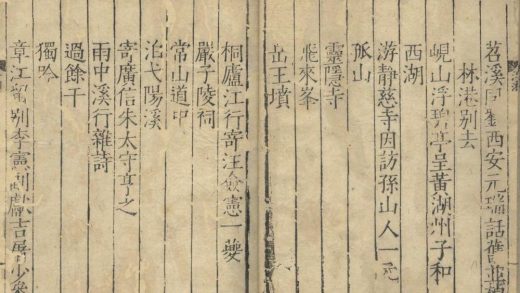 苕溪同劉西安元瑞話舊並
林港別去
峴山浮碧亭呈黃湖州子和
西湖
游靜慈寺因訪孫山人一元
孤山
靈隱寺
飛來峯
岳王墳
桐廬江行寄汪僉憲一夔
嚴子陵祠
常山道中
泊弋陽溪
寄廣信朱太守亨之
雨中溪行雜詩
過餘干
獨吟
章江留別李憲副獻吉屠少參